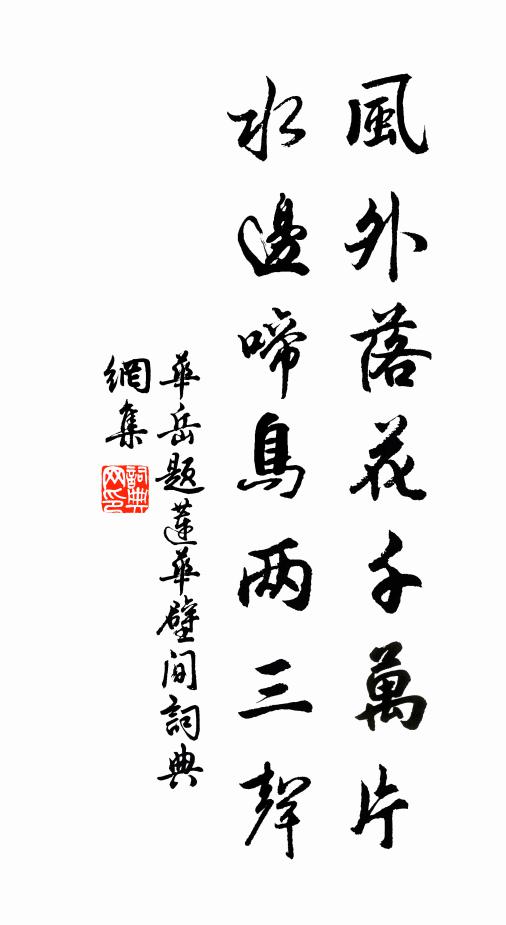 風外落花千萬片
水邊啼鳥两三聲
華岳題蓮華壁间詞典
網集
詞典
网印